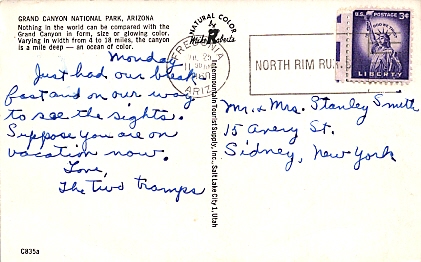 GRAND CANYON NATIONAL PARK, ARIZONA
Nothing in the world can be compared with the
Grand Canyon in form, size or glowing color.
Varying in width from 4 to 18 miles, the canyon
is a mile deep — an ocean of color.
Monday
Just had our break
fast and on our way
to see the sights.
Suppose you are on
vacation now.
Love,
The Two tramps
C835a
NATURAL COLOR
Intermountain Tourist Supply, Inc., Salt Lake City 1, Utah
FREDONIA
ARIZ
NORTH RIM
U.S. POSTAGE 3¢
LIBERTY
Mr. & Mrs. Stanley Smith
15 Avery St.
Sidney, New York